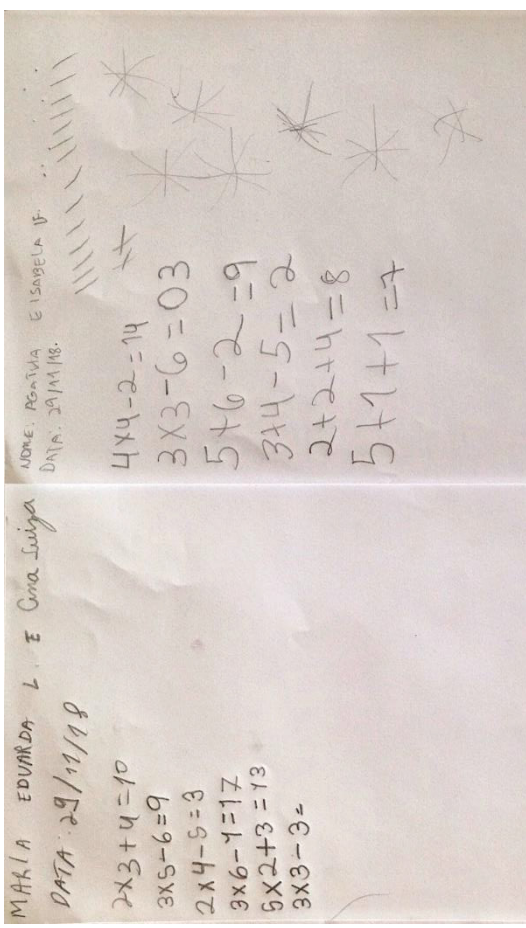 MARIA EDUARDA L. E Ana Luiza
DATA: 29/11/18
2x3+4=10
3x5-6=9
2x4-5=3
3x6-1=17
5x2+3=13
3x3-3=
NOME: AGATHA E ISABELA F.
DATA: 29/11/18.
4x4-2=14
3x3-6=03
5+6-2=9
3+4-5=2
2+2+4=8
5+1+1=7